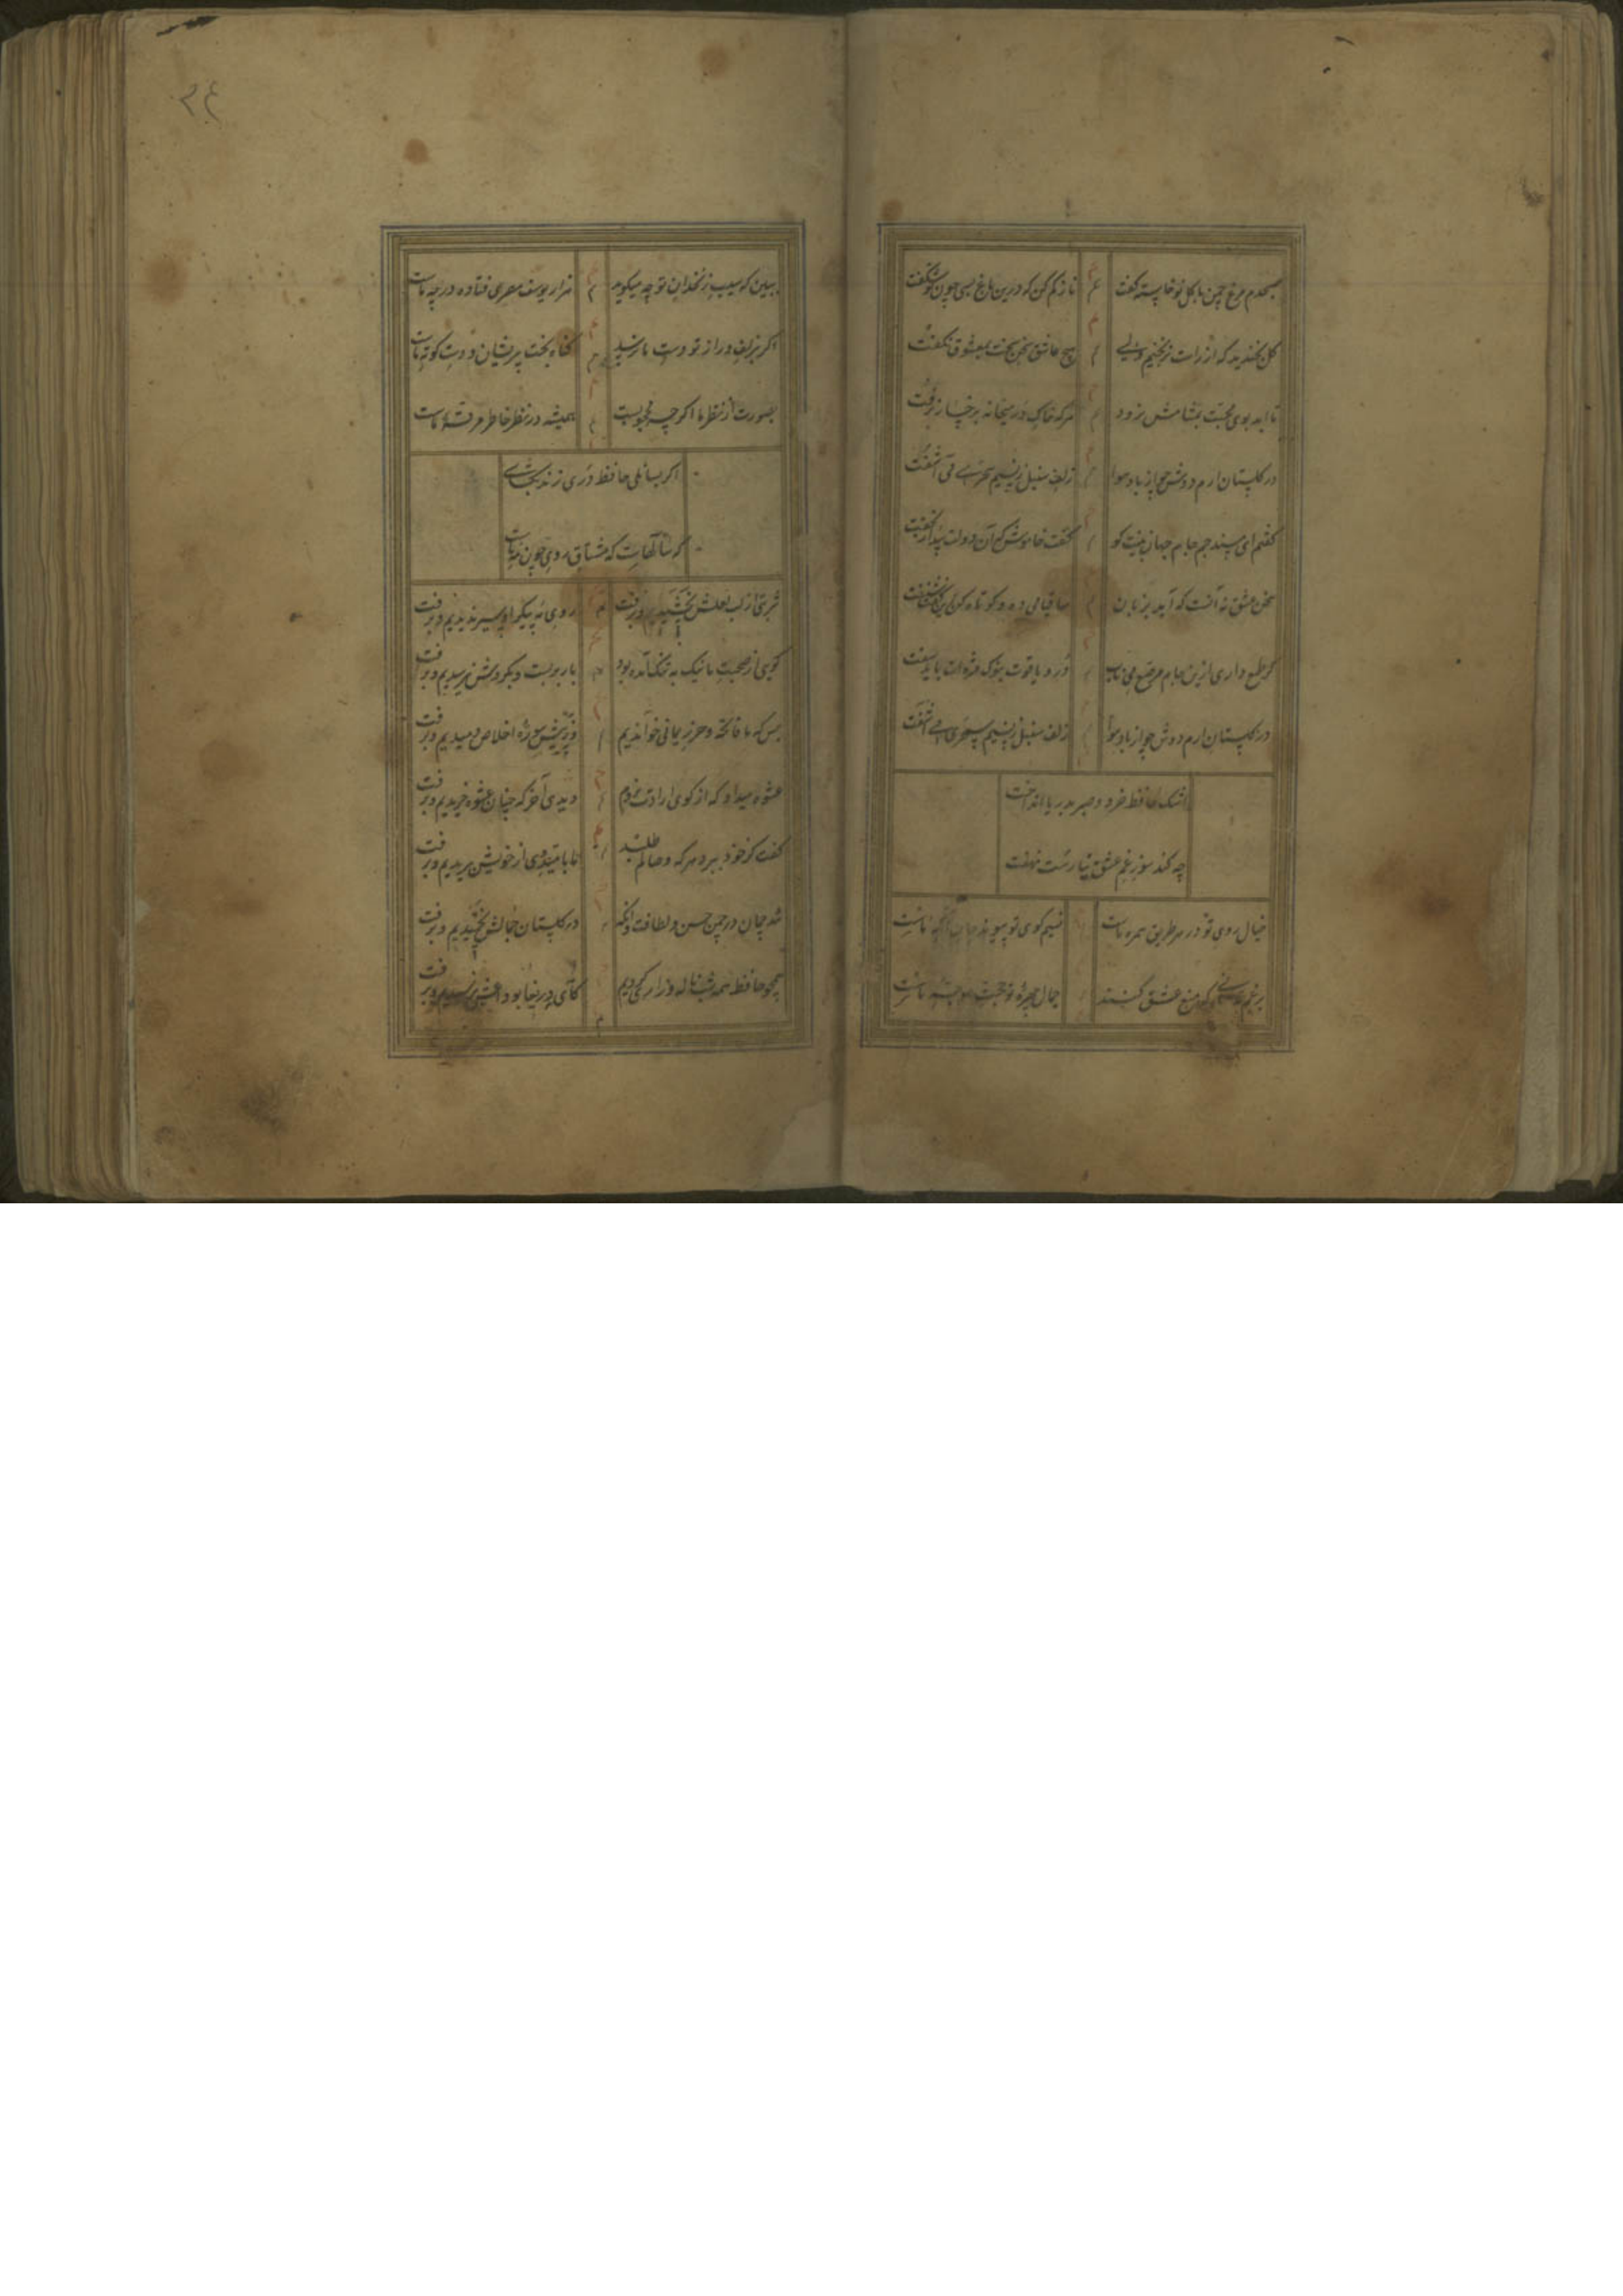 صبحدم مرغ چمن با گل نوخاسته گفت ناز کم کن که درین باغ بسی چون تو شکفت
گل بخندید که از راست نرنجیم ولی هیچ عاشق سخن سخت بمعشوق نگفت
تا ابد بوی محبت بمشامش نرود هرکه خاک در میخانه برخسار نرفت
در گلستان ارم دوش چو از باد هوا زلف سنبل ز نسیم سحری می آشفت
گفتم ای مسند جم جام جهان بینت کو گفت خاموش که آن دولت بیدار بخفت
سخن عشق نه آنست که آید بزبان ساقیا می ده و کوتاه کن این گفت و شنفت
گر طمع داری ازین جام مرصع می ناب در و یاقوت بنوک مژه ات باید سفت
در گلستان ارم دوش چو از باد هوا زلف سنبل ز نسیم سحری می آشفت
اشک حافظ خرد و صبر بدریا انداخت
چه کند سوز غم عشق نیارست نهفت
خیال روی تو در هر طریق همره ماست نسیم کوی تو پیوند جان آگه ماست
برغم مدعیانی که منع عشق کنند جمال چهره تو حجت موجه ماست
۳۴
ببین که سیب زنخدان تو چه میگوید هزار یوسف مصری فتاده در چه ماست
اگر بزلف دراز تو دست ما نرسید گناه بخت پریشان و دست کوته ماست
بصورت از نظر ما اگر چه محجوبست همیشه در نظر خاطر مرفه ماست
اگر بسائلی حافظ دری زند بگشای
که سالهاست که مشتاق روی چون مه ماست
شربتی از لب لعلش نچشیدیم و برفت روی مه پیکر او سیر ندیدیم و برفت
گویی از صحبت ما نیک به تنگ آمده بود بار بربست و بگردش نرسیدیم و برفت
بس که ما فاتحه و حرز یمانی خواندیم وز پیش سوره اخلاص دمیدیم و برفت
عشوه میداد که از کوی ارادت نروم دیدی آخر که چنان عشوه خریدیم و برفت
گفت کز خود ببرد هرکه وصالم طلبد ما بامید وی از خویش بریدیم و برفت
شد چمان در چمن حسن و لطافت وانگه در گلستان جمالش نچمیدیم و برفت
همچو حافظ همه شب ناله و زاری کردیم کای دریغا بوداعش نرسیدیم و برفت